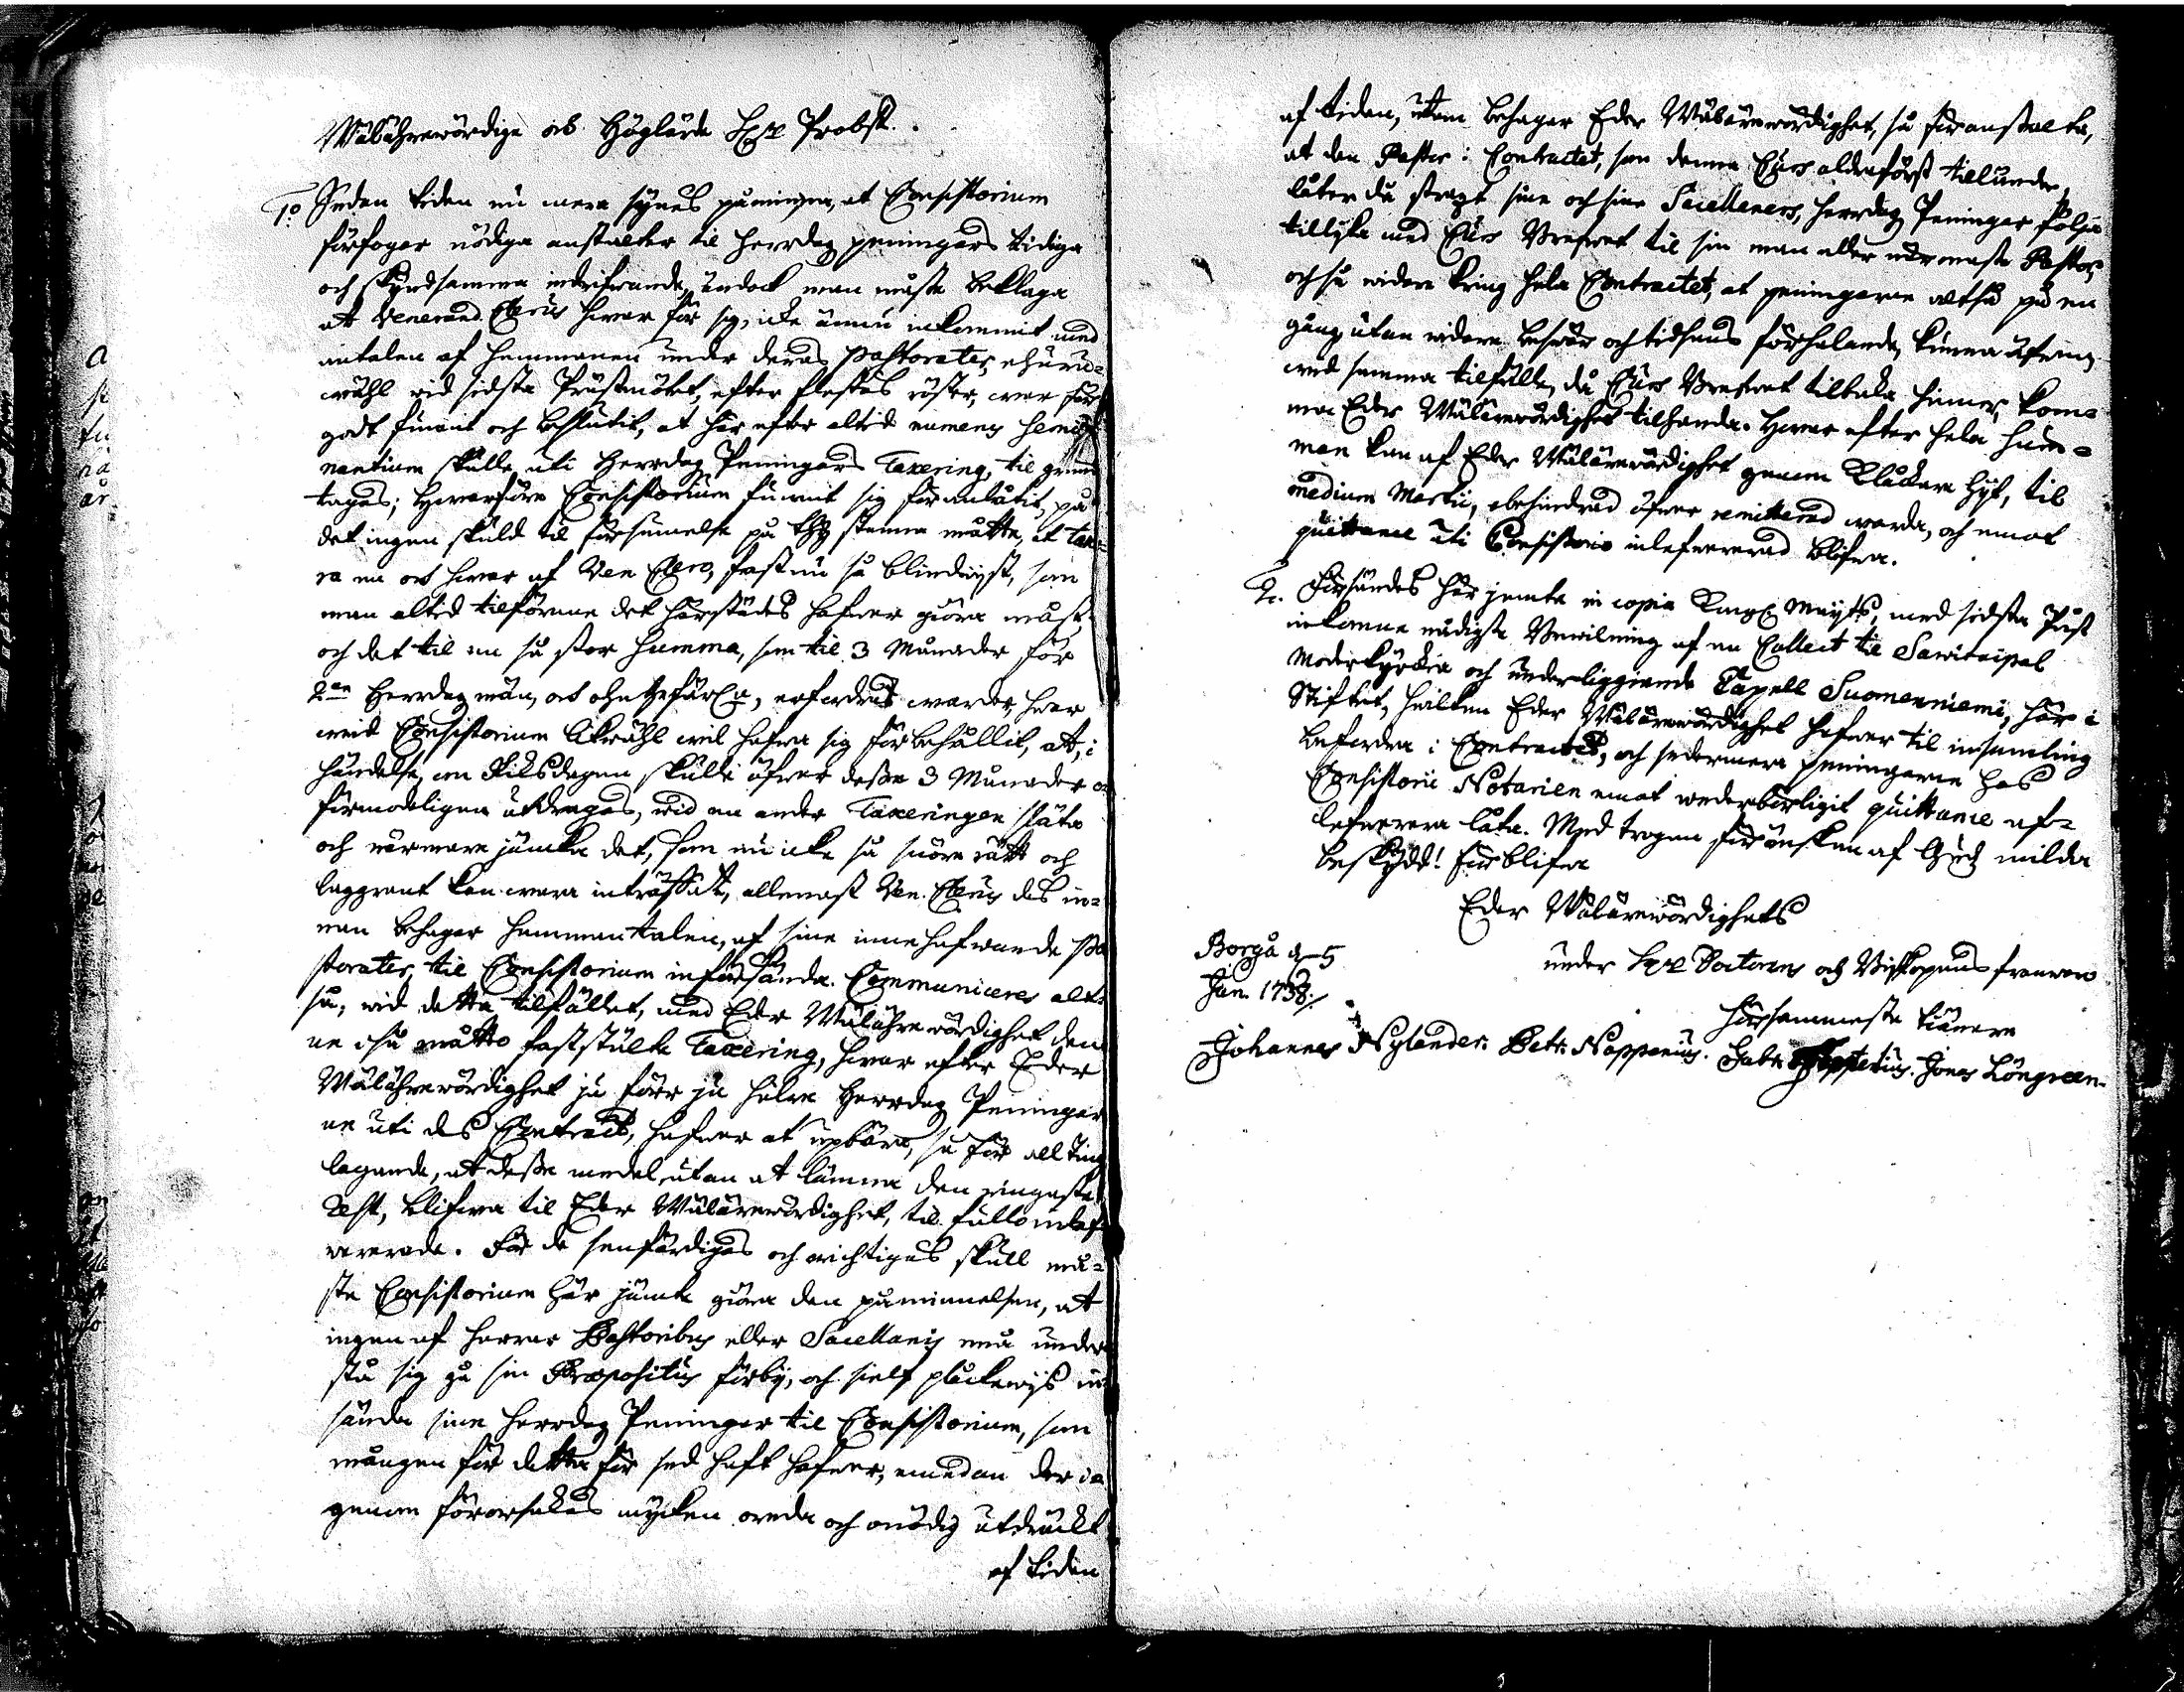 Wälährewördige och Höglärde Herr Probst.
1o Sedan tiden nu mera synes påminna, at Consistorium
förfogar nödiga anstalter til Herredag peningars tidiga
och skyndsamma indrifwande, ändock man måste beklaga
att Venerand. Clerus hwar för sig, icke ännu inkommit med
antalen af hemmanen under deras Pastorater, ehuru-
wähl wid sidsta Prästmötet, efter flestas röster, war för
godt funnit och beslutit, at här efter altid numerus
mantium skulle uti Herredag Peningars Taxering, til grund
tagas; Hwarföre Consistorium funnit sig föranlåtit, på
det ingen skuld til försummelse på thess stanna måtte, at taxe-
ra en och hwar af Ven. Clero, fast nu så blindwijst, som
man altid tilförenne det härstädes hafwer giöra måst,
och det til en så stor summa, som til 3 Månader för
2ne Herredagsmän, och ohngefärl:n, erfordras warder, hwar
wid Consistorium likwähl wil hafwa sig förbehållit, att, i
händelse, om Riksdagen skulle öfwer desse 3 Månader
förmodeligen utdragas, wid en andra Taxeringen släta
och närmare jämka det, som nu icke så snöre rätt och
laggrant kan wara inträffat, allenast Ven. Clerus des in-
nan behagar hemmantalen, af sine innehafwande Pa-
storater, til Consistorium införsända. Communiceres alt-
så, wid detta tilfället, med Eder Wälährewördighet den-
ne i så måtto faststälte Taxering, hwar efter Eder
Wälährewördighet ju förr ju hälre Herredag Peningar-
ne uti des Contract, hafwer at upbära, så för allting
lagande, at desse medel, utan at lämna den ringaste
Rest, blifwa til Eder Wälärewördighet, til fullo inlef-
wererade. För de senfärdigas och wichtigas skull må-
ste Consistorium här jämte giöra den påminnelsen, at
ingen af Herrar Pastoribus eller Sacellanis må under-
stå sig gå sin Præpositus förby, och sielf plåckewijs in-
sända sine Herredag Peningar til Consistorium, som
mången för detta för sed haft hafwer, emedan der i-
genom förorsakas mycken oreda och onödig utdräckt
af tiden
af tiden, utan behagar Eder Wälärewördighet, så föranstalta,
at den Pastor i Contractet, som denna Curs aldraförst tillhanda,
låter då strax sine och sine Sacellaners, Herredag Peningar följa
tillijka med Curs Brefwet til sin man eller närmaste Pastor,
och så widare kring hela Contractet, at peningarne altså på en
gång utan widare beswär och tidsens förhalande, kunna
med samma tilfälle, då Curs Brefwet tilbaka hinner, kom-
ma Eder Wälärewördighet tilhanda. Hwar efter hela Sum-
man kan af Eder Wälärewördighet genom Klåckare hijt, til
medium Martii, obehindrad öfwer remitterad warda, och emot
quittance uti Consistorio inlefwererad blifwa.
2. Försändes här jemte in copia Kongl. Maij:ts, med sidsta Påst
inkomne nådigste Bewilning af en Collect til Sawitaipal
Moderkyrckia och underliggiande Capell Suomenniemi, här i
Stiftet, hwilken Eder Wälärewördighet hafwer til insamling
befordra i Contractet, och sedermera peningarne hos
Consistorii Notarien emot wederbörligit quittance af-
lefwerera låta. Med trogen förönskan af Gudz milda
beskydd! förblifwa
Eder Wälärewördighets
Borgå d. 5
Jan. 1738.
under Herr Doctorens och Biskopens franwaro
hörsammeste tiänare
Johannes Nylander. Petr. Noppenius. Gabr. Jonas Löngreen.